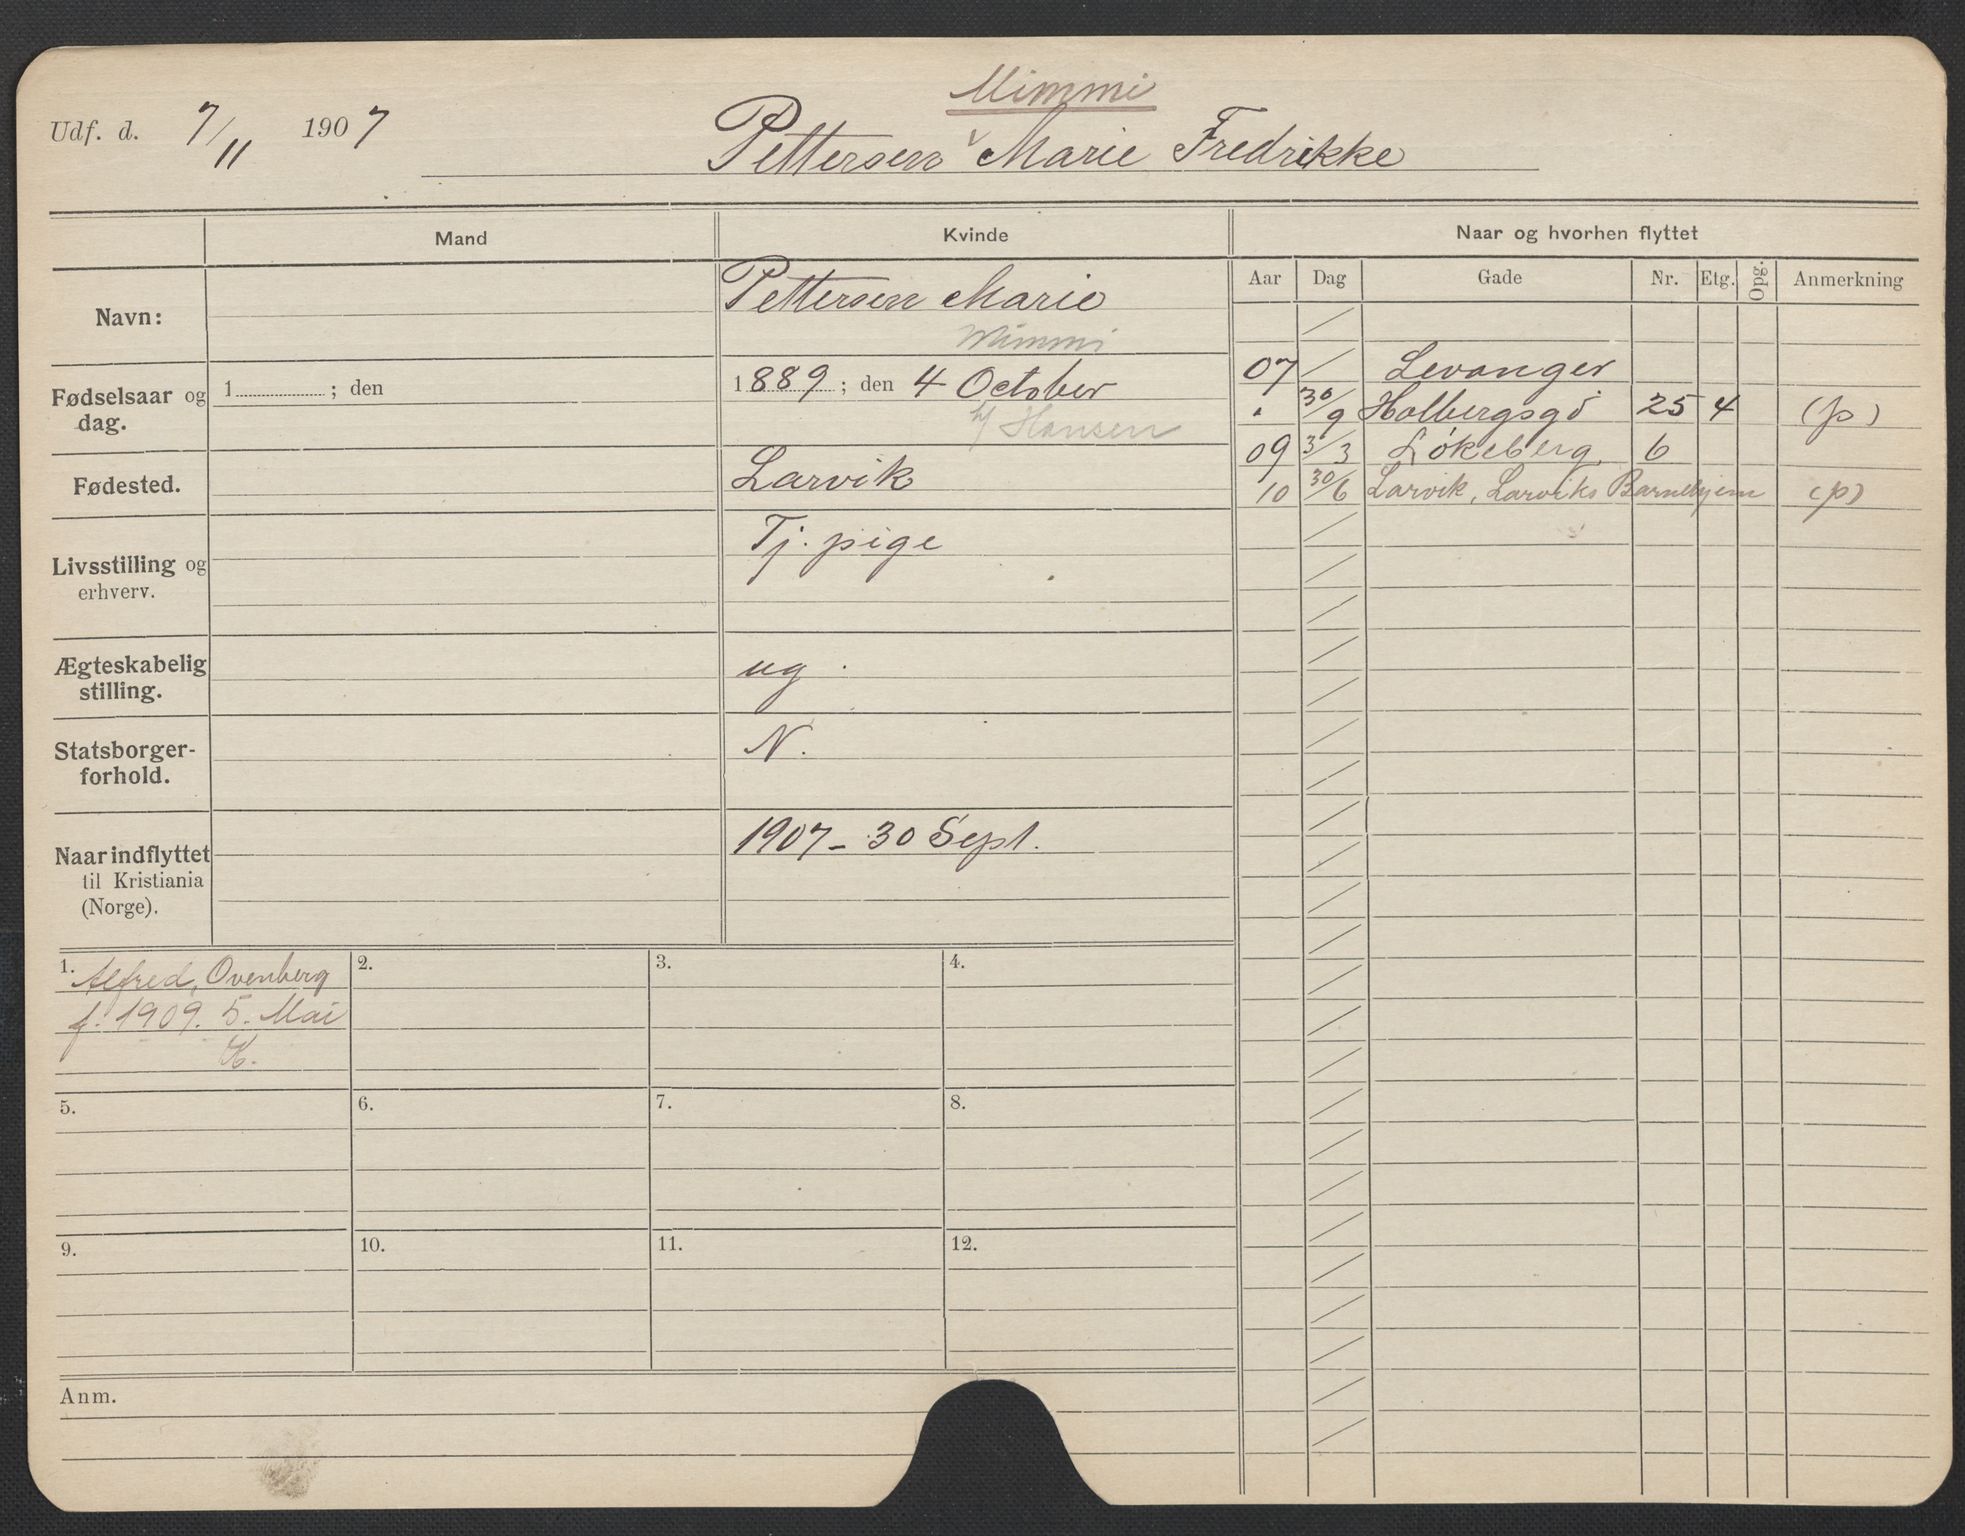 Mimmi
Udf. d. 7/11 1907 Pettersen v Marie Fredrikke
Mand Kvinde Naar og hvorhen flyttet
Aar Dag Gade Nr. Etg. Opg. Anmerkning
Navn: Pettersen Marie
Mimmi
07 / Levanger
Fødselsaar og dag. 1 ; den 1889 ; den 4 October
" 30/9 Holbergsgd 25 4 (p)
Hansen
09 3/3 Løkeberg 6
Fødested. Larvik
10 30/6 Larvik, Larviks Barnehjem (p)
Livsstilling og erhverv. Tj. pige
Ægteskabelig stilling. ug.
Statsborger-
forhold. N.
Naar indflyttet
til Kristiania
(Norge). 1907 - 30 Sept.
1. Alfred, Ovenberg 2. 3. 4.
f. 1909. 5. Mai
K.
5. 6. 7. 8.
9. 10. 11. 12.
Anm.